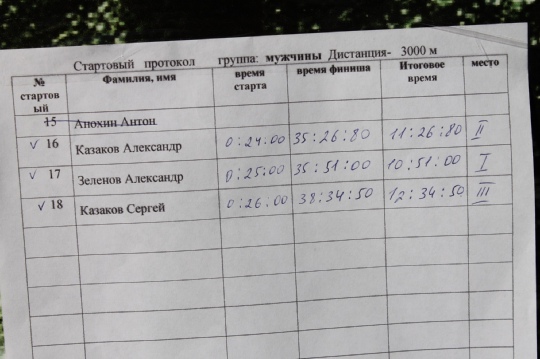 Стартовый протокол группа: мужчины Дистанция- 3000 м
№ стартов ый Фамилия, имя время старта время финиша Итоговое время место
15 Анохин Антон
√ 16 Казаков Александр 0:24:00 35:26:80 11:26:80 II
√ 17 Зеленов Александр 0:25:00 35:51:00 10:51:00 I
√ 18 Казаков Сергей 0:26:00 38:34:50 12:34:50 III